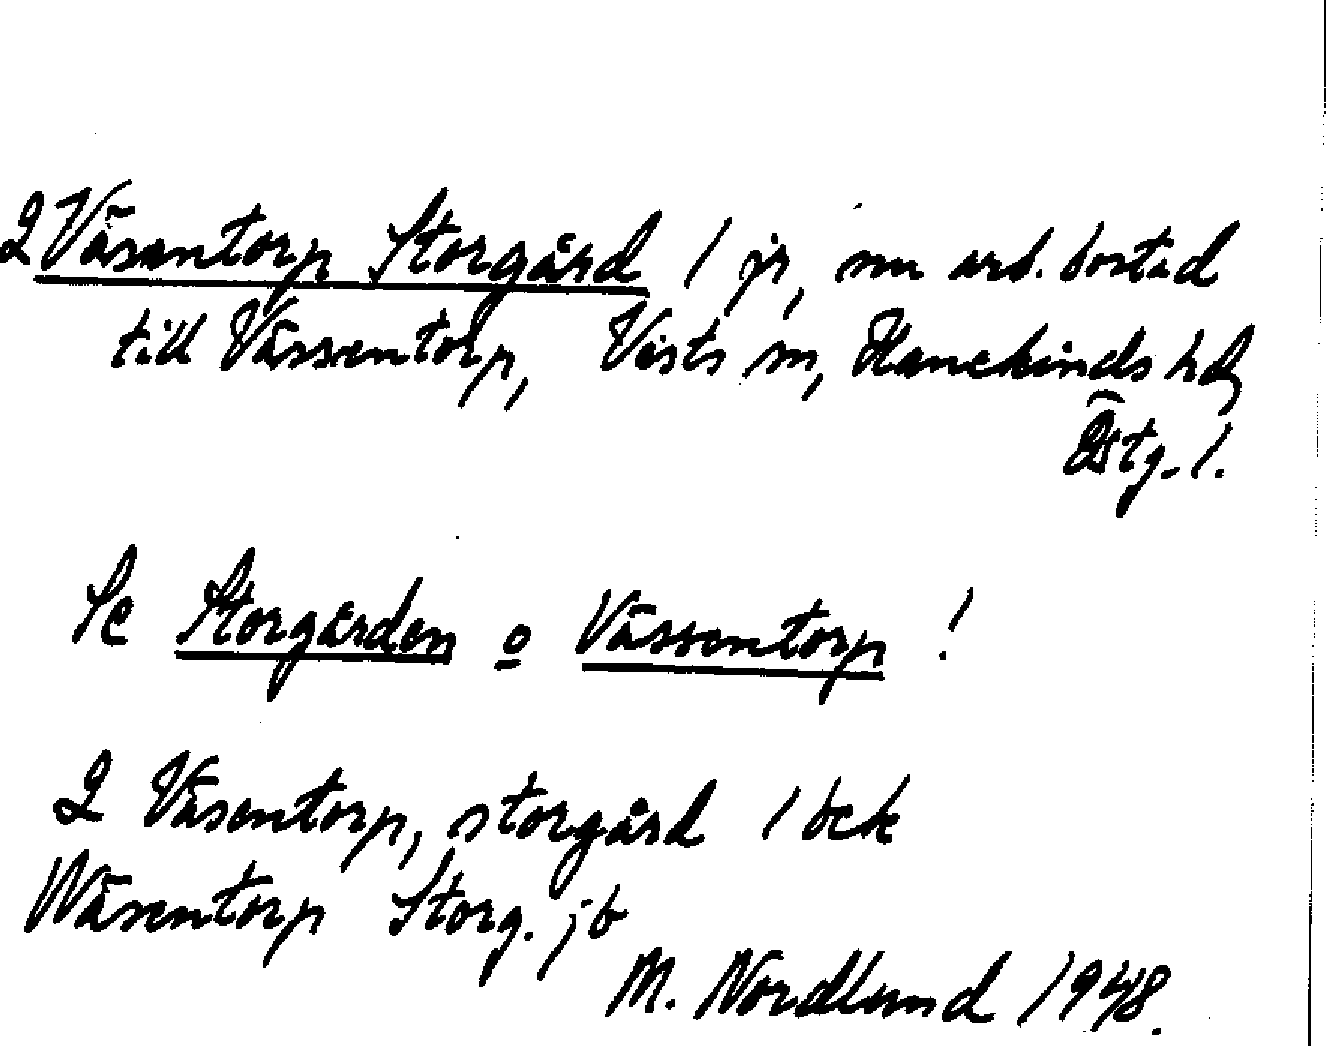 2 Väsentorp Storgård / jr, nu arb.bostad
till Vässentorp, Vists sn, Hanekinds hd,
Östg. l.
Se Storgården o Vässentorp !
2 Väsentorp, storgård / bek
Wäsentorp Storg. jb
M. Nordlund 1948.